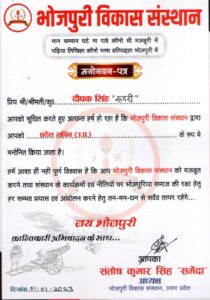 भोजपुरी विकास संस्थान
मान सम्मान घटे ना पावे कौनो भी मजबूरी में
पढ़िया लिखिहा कौनो भाषा बतियइहा भोजपुरी में
मनोनयन-पत्र
प्रिय श्री/श्रीमती/कु० दीपक सिंह
आपको सूचित करते हुए अत्यन्त हर्ष हो रहा है कि भोजपुरी विकास संस्थान द्वारा
आपको के रूप में
मनोनित किया जाता है।
हमें आशा ही नहीं पूर्ण विश्वास है कि आप भोजपुरी विकास संस्थान को मजबूत
करने तथा संस्थान के कार्यक्रमों एवं नीतियों पर भोजपुरिया समाज की रक्षा हेतु
हर सम्भव प्रयास एवं आन्दोलन करने हेतु तन-मन-धन से सदैव तत्पर रहेंगे...
जय भोजपुरी
क्रान्तिकारी अभिवादन के साथ...
आपका
संतोष कुमार सिंह "सनेडा"
अध्यक्ष
दिनांक 01/01/2023
भोजपुरी विकास संस्थान, उत्तर प्रदेश